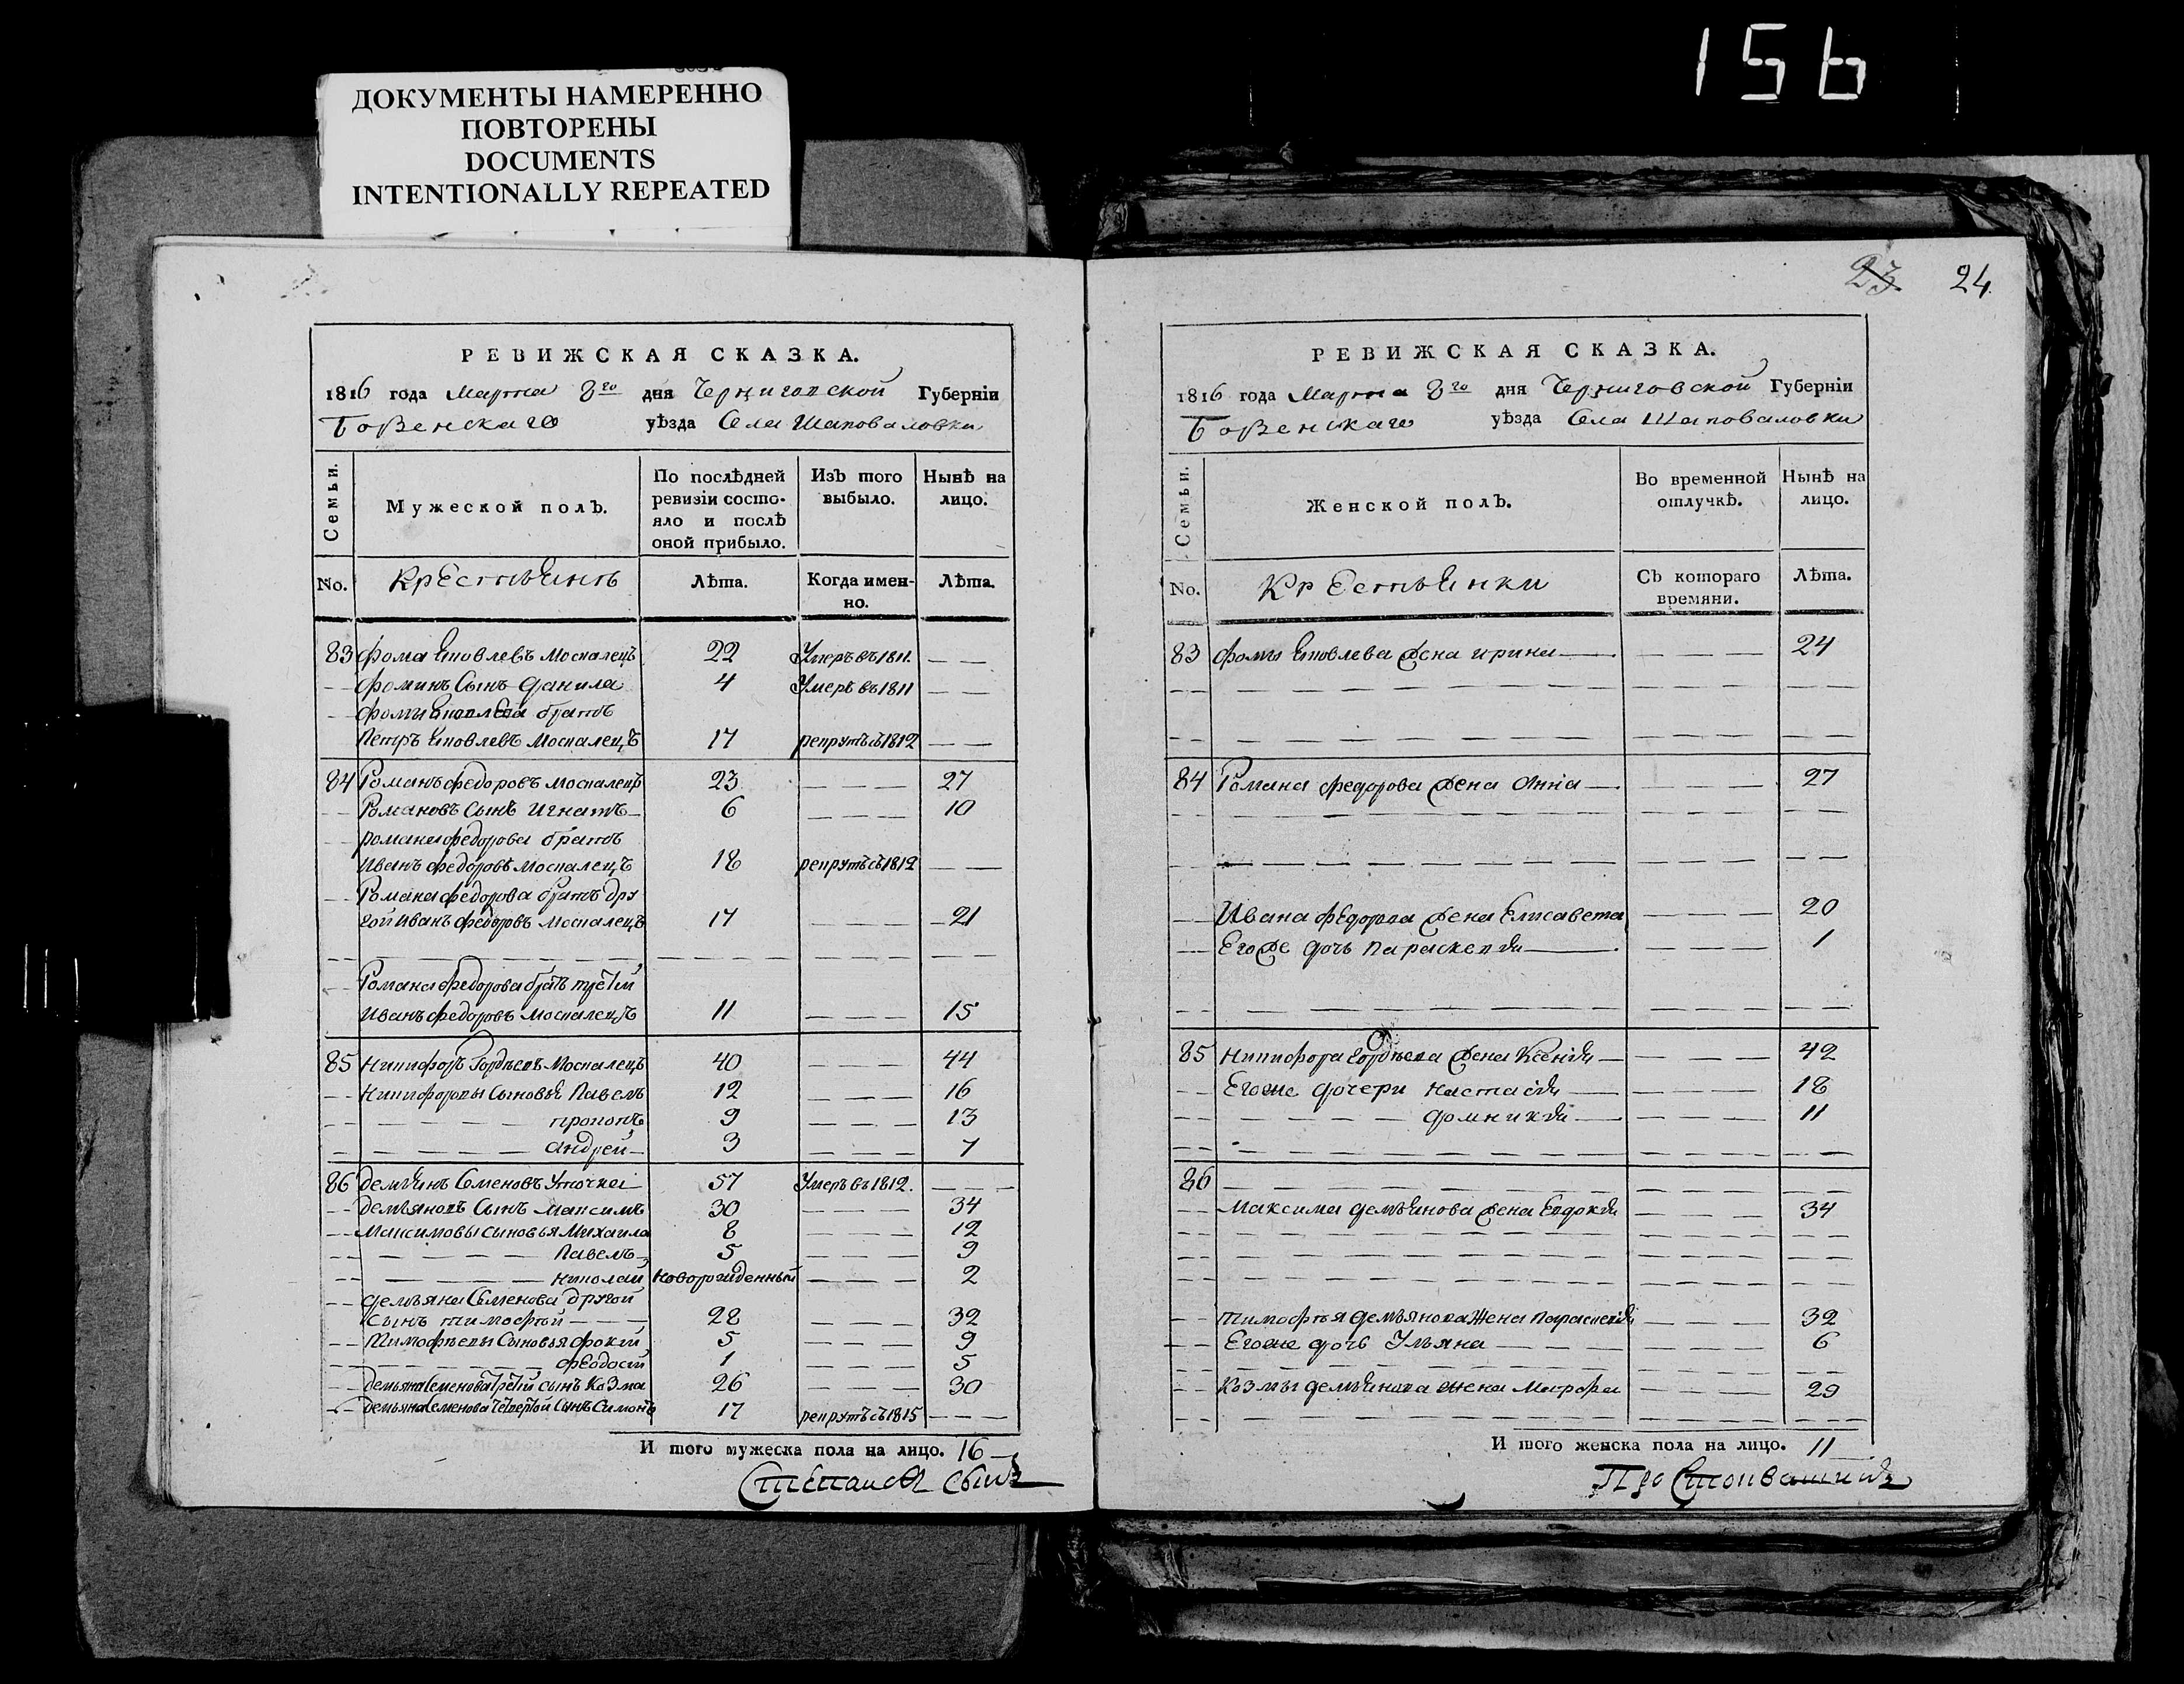 156
ДОКУМЕНТЫ НАМЕРЕННО
ПОВТОРЕНЫ
DOCUMENTS
INTENTIONALLY REPEATED
РЕВИЖСКАЯ СКАЗКА.
1816 года Марта 8го дня Черниговской Губерніи
Борзенскаго уѣзда Села Шаповаловки
Семьи.
Мужеской полъ.
По послѣдней ревизіи состояло и послѣ оной прибыло.
Изъ того выбыло.
Нынѣ на лицо.
No. Крестьянъ Лѣта. Когда именно. Лѣта.
83 Фома Яковлевъ Москалецъ 22 Умеръ въ 1811. — —
— Фоминъ Сынъ Данила 4 Умеръ въ 1811 — —
— Фомы Яковлева братъ
Петръ Яковлевъ Москалецъ 17 рекрутъ съ 1812 — —
84 Романъ Федоровъ Москалецъ 23 — — — 27
— Романовъ Сынъ Игнатъ 6 — — — 10
— Романа Федорова братъ
Иванъ Федоровъ Москалецъ 18 рекрутъ съ 1812 — —
— Романа Федорова братъ дру
гой Иванъ Федоровъ Москалецъ 17 — — — 21
— Романа Федорова братъ третій
Иванъ Федоровъ Москалецъ 11 — — — 15
85 Никифоръ Гордѣевъ Москалецъ 40 — — — 44
— Никифоровы Сыновья Павелъ 12 — — — 16
— прокопъ 9 — — — 13
— андрей 3 — — — 7
86 Демьянъ Семеновъ Уточка 57 Умеръ въ 1812. — — —
— Демьяновъ Сынъ Максимъ 30 — — — 34
— Максимовы сыновья Михаила 8 — — — 12
— Павелъ 5 — — — 9
— николай новорожденный — — — 2
— Демьяна Семенова другой
Сынъ тимофѣй 28 — — — 32
— Тимофѣевы Сыновья Фокій 5 — — — 9
— Феодосій 1 — — — 5
— Демьяна Семенова Третій сынъ Козма 26 — — — 30
— Демьяна Семенова Четвертой Сынъ Симонъ 17 рекрутъ съ 1815 — — —
И того мужеска пола на лицо. 16
Степановъ Сынъ
23 24
РЕВИЖСКАЯ СКАЗКА.
1816 года Марта 8го дня Черниговской Губерніи
Борзенскаго уѣзда Села Шаповаловки
Семьи.
Женской полъ.
Во временной отлучкѣ.
Нынѣ на лицо.
No. Крестьянки Съ котораго времяни. Лѣта.
83 Фомы Яковлева Жена ирина — — — 24
84 Романа Федорова Жена Анна — — — 27
— Ивана Федорова Жена Елисавета — — — 20
— Егоже дочь Параскевія — — — 1
85 Никифора Гордѣева Жена Ксенія — — — 42
— Егоже дочери Настасія — — — 18
— домникія — — — 11
86
— Максима демьянова Жена Евдокія — — — 34
— Тимофѣя демьянова Жена Параскевія — — — 32
— Егоже дочь Ульяна — — — 6
— Козмы демьянова жена Марфа — — — 29
И того женска пола на лицо. 11